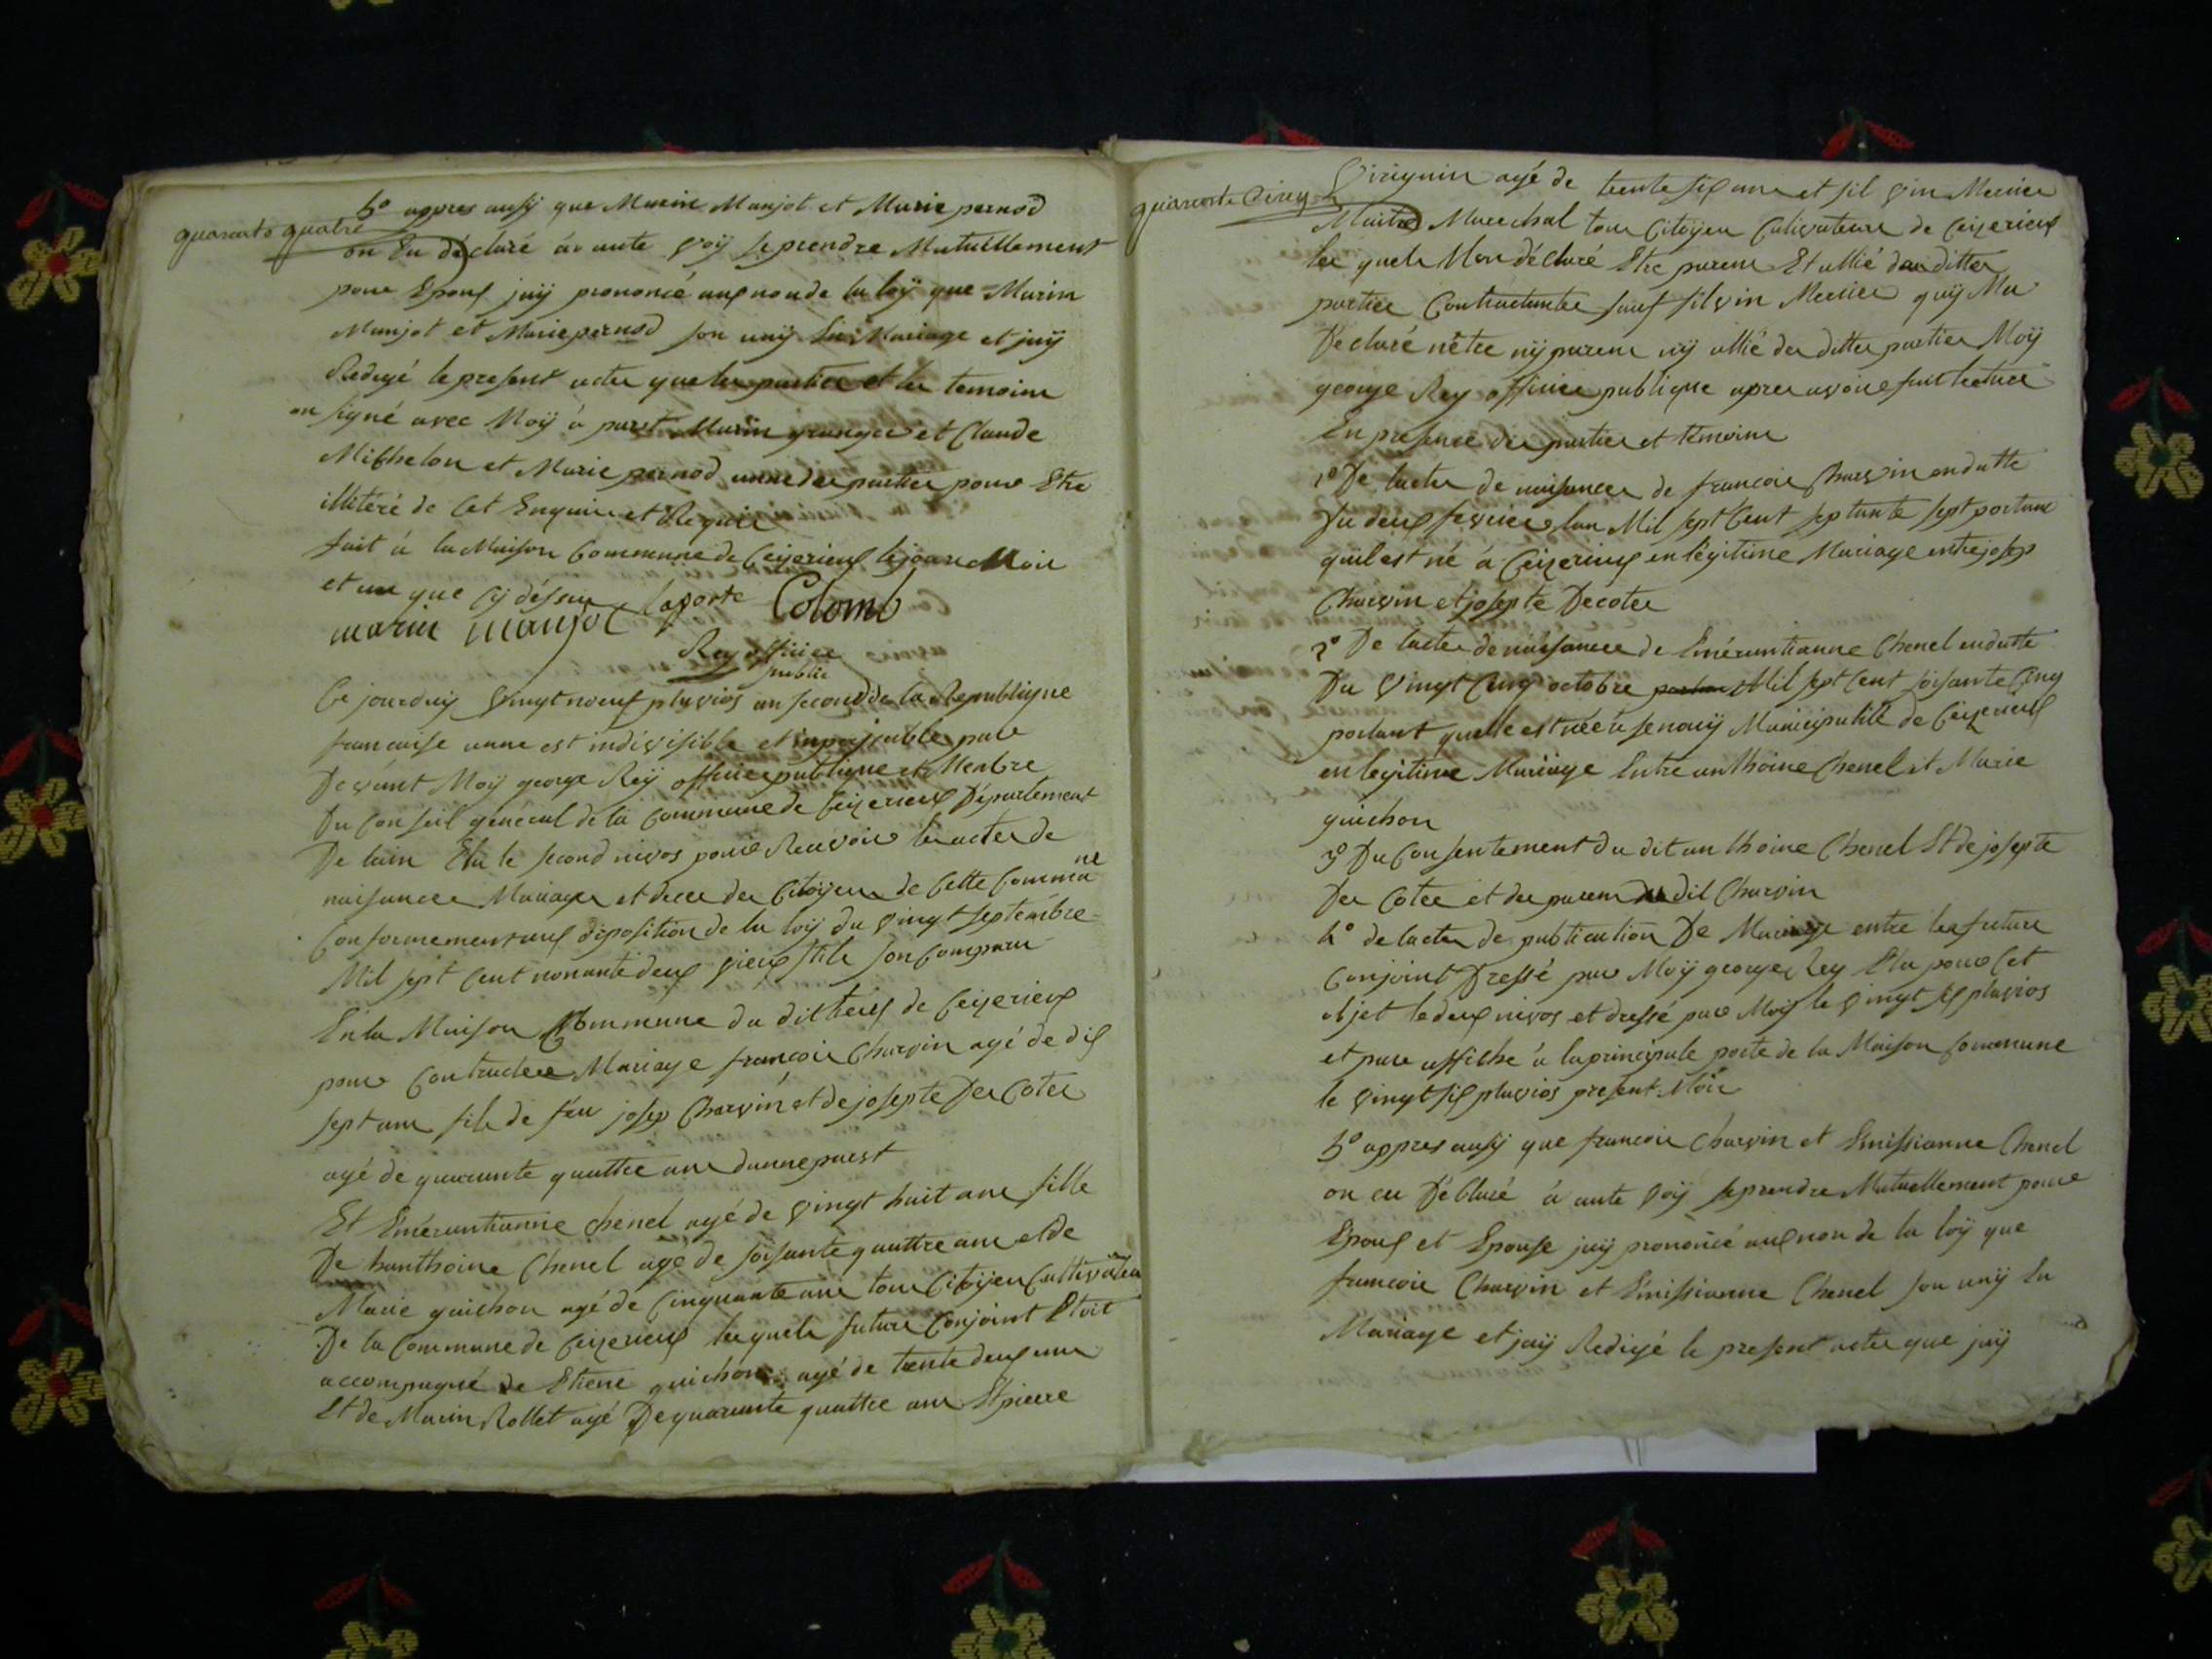 quarante quatre
5° appres ausÿ que Marin Manjot et Marie pernod
on Eu déclaré ár aute voÿ se prendre Mutuellement
pour Epoux jaÿ prononcé aux non de la loÿ que Marin
Manjot et Marie pernod son unÿ En Mariage et jaÿ
Redigé le present acter que les parties et les temoins
on signé avec Moÿ á part Marin granger et Claude
Mithelon et Marie pernod unne des parties pour Etre
illiteré de Cet Enquire et Requir
fait á la Maison Commune de Ceizerieux le jour Mois
et an que Cÿ déssus Laporte Colomb
marin manjot
Rey officier
public
Ce jourduÿ vingt neuf pluvios an second de la Republique
francaise unne est indivisible et inperisable par
Devant Moÿ george Reÿ officier publique et Menbre
Du Conseil general de la Commune de Ceizerieux Département
De lain Elu le second nivos pour Recevoir les actes de
naisances Mariages et deces des Citoÿens de Cette Commune
Conformement aux disposition de la loÿ du vingt septembre
Mil sept Cent nonante deux vieux stile son Comparu
En la Maison Commune du dit lieux de Ceizerieux
pour Contracter Mariage françois Charvin agé de dix
sept ans fils de feu josep Charvin et de josepte Des Cotes
agé de quarante quattre ans dunne part
Et Emérantianne Chenel agé de vingt huit ans fille
De hanthoine Chenel agé de soisante quattre ans et de
Marie guichon agé de Cinquante ans tous Citoÿen Cultivateur
De la Commune de Ceizerieux les quels future Conjoint Etoit
accompagné de Etiene guichon agé de trente deux ans
Et de Marin Rollet agé De quarante quattre ans Et pierre
quarante Cinq
virignin agé de trente six ans et silvin Mercier
Maitre Marechal tous Citoÿen Cultivateurs de Ceizerieux
les quels Mon déclaré Etre parens Et allié des dittes
parties Contractantes sauf silvin Mercier quÿ Ma
Declaré nétre nÿ parens nÿ allié des dittes parties Moÿ
george Rey officier publique apres avoire fait lecture
En presence des parties et témoins
1° De lacter de naisances de francois Charvin en datte
Du deux fevrier lan Mil sept Cent septante sept portant
quil est né á Ceizerieux en légitime Mariage entre josep
Charvin et josepte Decotes
2° De lacter de naissances de Emérantianne Chenel en datte
Du vingt Cinq octobre Mil sept Cent soisante Cinq
portant quelle est née á senouÿ Municipalité de Ceizerieux
en legitime Mariage Entre anthoine Chenel et Marie
guichon
3° Du Consentement du dit anthoine Chenel Et de josepte
Des Cotes et des parens du dit Charvin
4° de lacter de publication De Mariage entre les future
Conjoint Dressé par Moÿ george Rey Elu pour Cet
objet le deux nivos et dressé par Moÿ le vingt six pluvios
et pare affiché á la principale porte de la Maison Commune
le vingt six pluvios present Mois
5° appres ausÿ que francois Charvin et Emissianne Chenel
on eu Déclaré á aute voÿ se prendre Mutuellement pour
Epoux et Epouse jaÿ prononcé aux non de la loÿ que
francois Charvin et Emissianne Chenel son unÿ En
Mariage et jaÿ Redigé le present acter que jaÿ